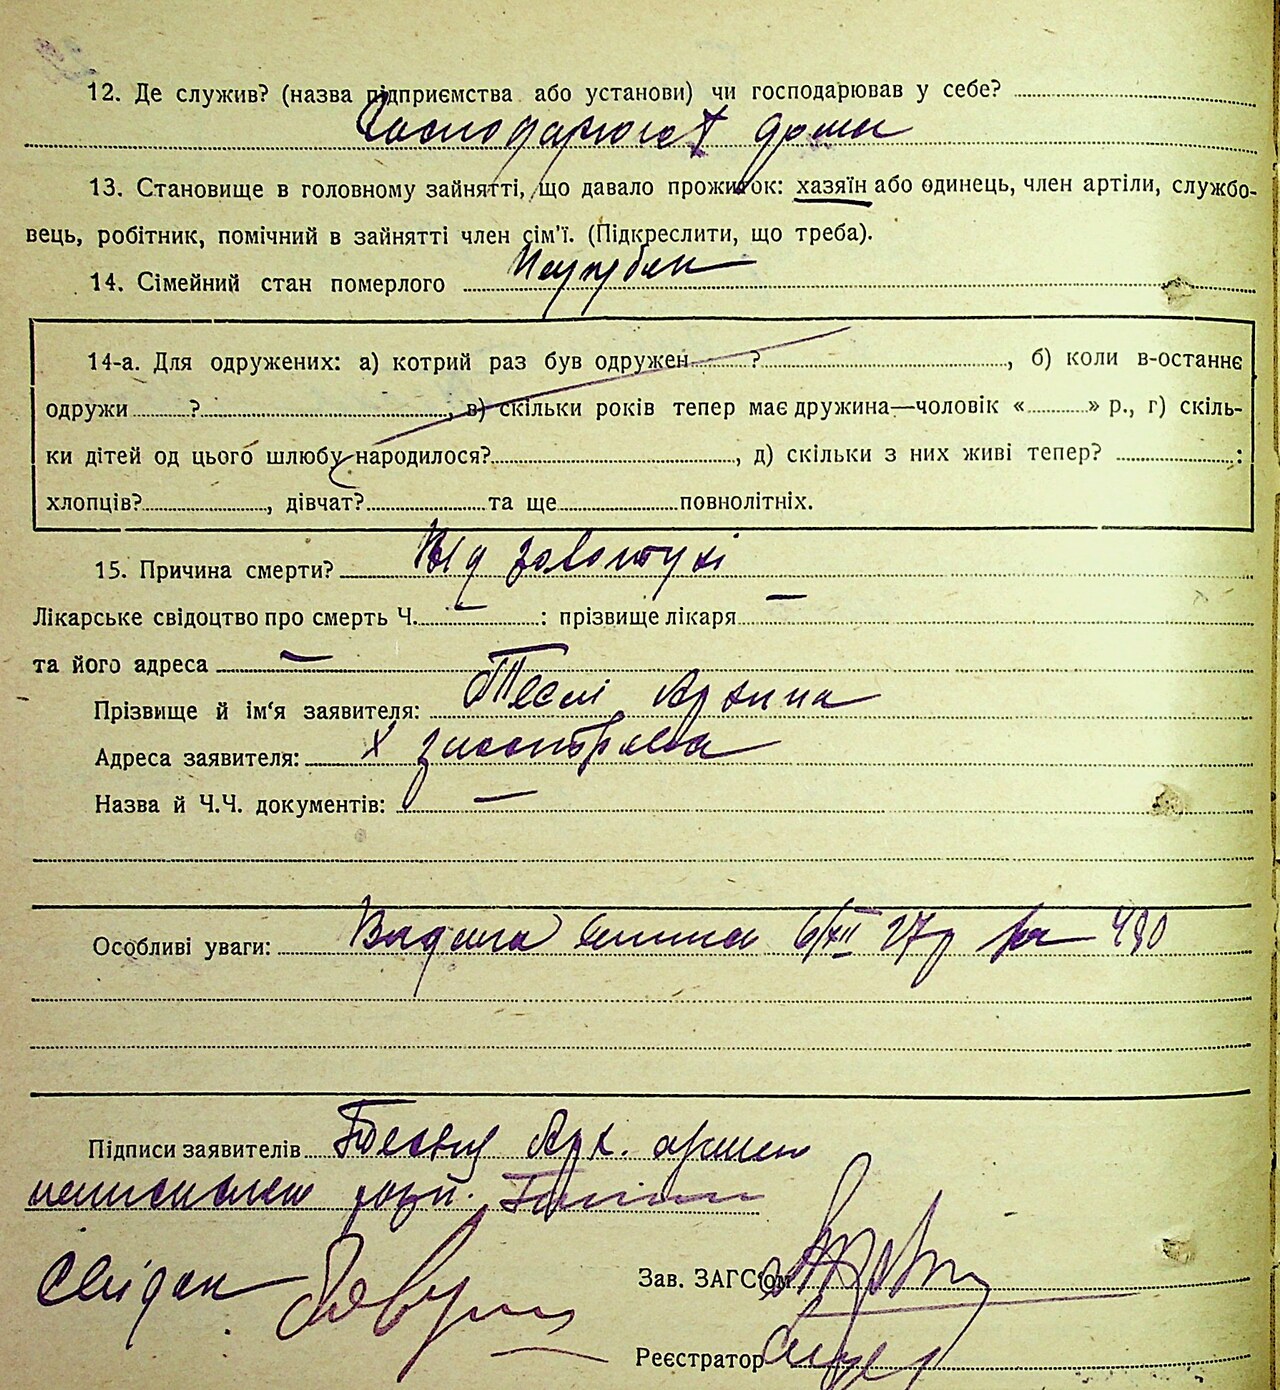 12. Де служив? (назва підприємства або установи) чи господарював у себе?
Господарює дома
13. Становище в головному зайнятті, що давало прожиток: хазяїн або одинець, член артіли, службо-
вець, робітник, помічний в зайнятті член сім'ї. (Підкреслити, що треба).
14. Сімейний стан померлого Парубок
14-а. Для одружених: а) котрий раз був одружен ? , б) коли в-останнє
одружи ? , в) скільки років тепер має дружина—чоловік « » р., г) скіль-
ки дітей од цього шлюбу народилося? , д) скільки з них живі тепер? :
хлопців? , дівчат? та ще повнолітніх.
15. Причина смерти? Від
Лікарське свідоцтво про смерть Ч. — : прізвище лікаря —
та його адреса —
Прізвище й ім'я заявителя:
Адреса заявителя: х
Назва й Ч.Ч. документів: —
Особливі уваги: Видана 6/XII 27р
Підписи заявителів
Свідок
Зав. ЗАГС'ом
Реєстратор